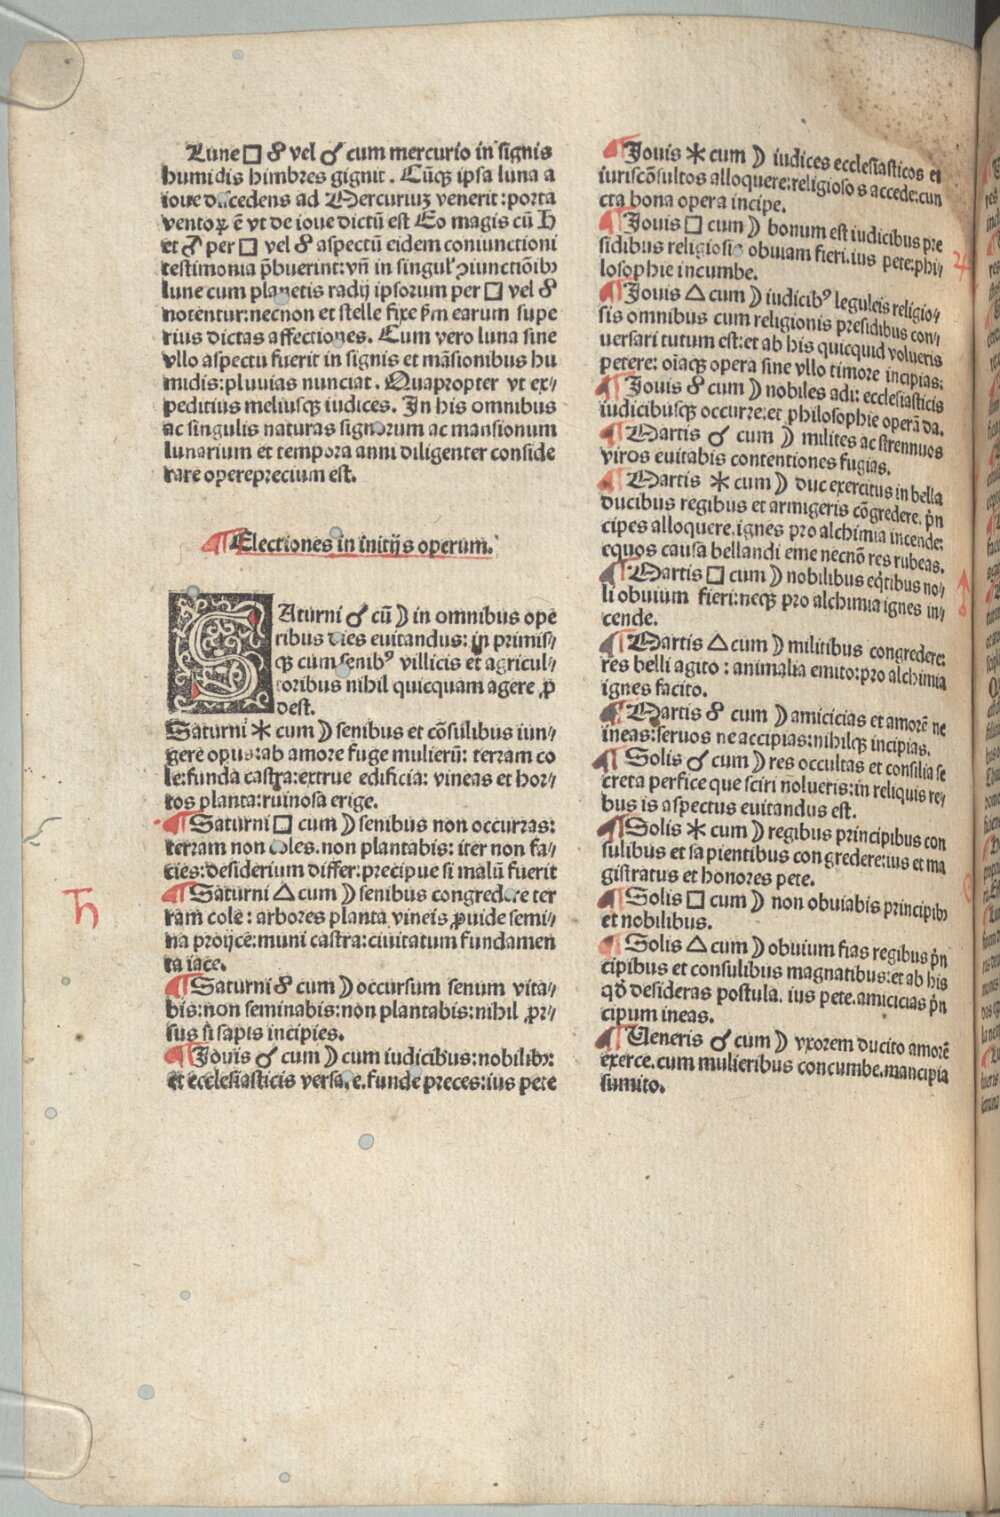 Lune □ ☍ vel ☌ cum mercurio in signis
humidis himbres gignit. Cūqꝫ ipsa luna a
ioue discedens ad Mercuriuꝫ venerit: porta
ventoꝝ ē vt de ioue dictū est Eo magis cū ♄
et ♂ per □ vel ☍ aspectū eidem coniunctioni
testimonia p̄buerint: vn̄ in singul' ꝯiunctiōibꝫ
lune cum planetis radij ipsorum per □ vel ☍
notentur: necnon et stelle fixe p̄m earum supe
rius dictas affectiones. Cum vero luna sine
vllo aspectu fuerit in signis et māsionibus hu
midis: pluuias nunciat. Quapropter vt ex⸗
peditius meliusqꝫ iudices. In his omnibus
ac singulis naturas signorum ac mansionum
lunarium et tempora anni diligenter conside
rare opereprecium est.
¶ Electiones in initijs operum.
SAturni ☌ cū ☽ in omnibus ope
ribus dies euitandus: in primis⸗
qꝫ cum senibꝰ villicis et agricul⸗
toribus nihil quicquam agere ꝓ
dest.
Saturni ⚹ cum ☽ senibus et cōsulibus iun⸗
gere opus: ab amore fuge mulierū: terram co
le: funda castra: extrue edificia: vineas et hor⸗
tos planta: ruinosa erige.
¶ Saturni □ cum ☽ senibus non occurras:
terram non coles. non plantabis: iter non fa⸗
cies: desiderium differ: precipue si malū fuerit
¶ Saturni △ cum ☽ senibus congredere ter
ram cole: arbores planta vineis ꝓuide semi⸗
na proijce: muni castra: ciuitatum fundamen
ta iace.
¶ Saturni ☍ cum ☽ occursum senum vita⸗
bis: non seminabis: non plantabis: nihil ꝓr⸗
sus si sapis incipies.
¶ Jouis ☌ cum ☽ cum iudicibus: nobilibꝫ:
et ecclesiasticis versare. funde preces: ius pete
♄
¶ Jouis ⚹ cum ☽ iudices ecclesiasticos et
iuriscōsultos alloquere: religiosos accede: cun
cta bona opera incipe.
¶ Jouis □ cum ☽ bonum est iudicibus pre
sidibus religiosis obuiam fieri. ius pete: phi⸗
losophie incumbe.
¶ Jouis △ cum ☽ iudicibꝰ leguleis religio⸗
sis omnibus cum religionis presidibus con⸗
uersari tutum est: et ab his quicquid volueris
petere: oīaqꝫ opera sine vllo timore incipias:
¶ Jouis ☍ cum ☽ nobiles adi: ecclesiasticis
iudicibusqꝫ occurre: et philosophie operā da.
¶ Martis ☌ cum ☽ milites ac strennuos
viros euitabis contentiones fugias.
¶ Martis ⚹ cum ☽ duc exercitus in bella
ducibus regibus et armigeris cōgredere. pͥn
cipes alloquere. ignes pro alchimia incende:
equos causa bellandi eme necnō res rubeas.
¶ Martis □ cum ☽ nobilibus eqͥtibus no⸗
li obuium fieri: neqꝫ pro alchimia ignes in⸗
cende.
¶ Martis △ cum ☽ militibus congredere:
res belli agito: animalia emito: pro alchimia
ignes facito.
¶ Martis ☍ cum ☽ amicicias et amorē ne
ineas: seruos ne accipias: nihilqꝫ incipias.
¶ Solis ☌ cum ☽ res occultas et consilia se
creta perfice que sciri nolueris: in reliquis re⸗
bus is aspectus euitandus est.
¶ Solis ⚹ cum ☽ regibus principibus con
sulibus et sapientibus congredere: ius et ma
gistratus et honores pete.
¶ Solis □ cum ☽ non obuiabis principibꝫ
et nobilibus.
¶ Solis △ cum ☽ obuium fias regibus pͥn
cipibus et consulibus magnatibus: et ab his
qd̄ desideras postula. ius pete. amicicias pͥn
cipum ineas.
¶ Veneris ☌ cum ☽ vxorem ducito amorē
exerce. cum mulieribus concumbe. mancipia
sumito.
♃